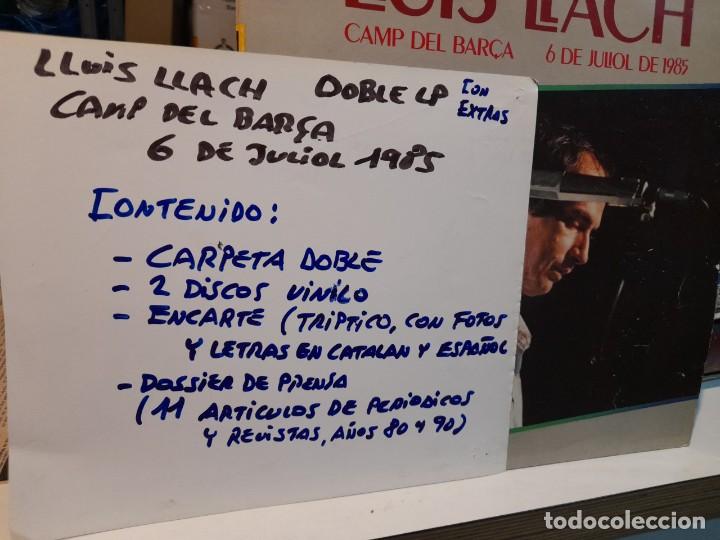 LLUIS LLACH
CAMP DEL BARÇA 6 DE JULIOL DE 1985
LLUIS LLACH DOBLE LP CON
EXTRAS
CAMP DEL BARÇA
6 DE JULIOL 1985
CONTENIDO:
- CARPETA DOBLE
- 2 DISCOS VINILO
- ENCARTE (TRIPTICO, CON FOTOS
Y LETRAS EN CATALAN Y ESPAÑOL
- DOSSIER DE PRENSA
(11 ARTICULOS DE PERIODICOS
Y REVISTAS, AÑOS 80 Y 90)
todocoleccion